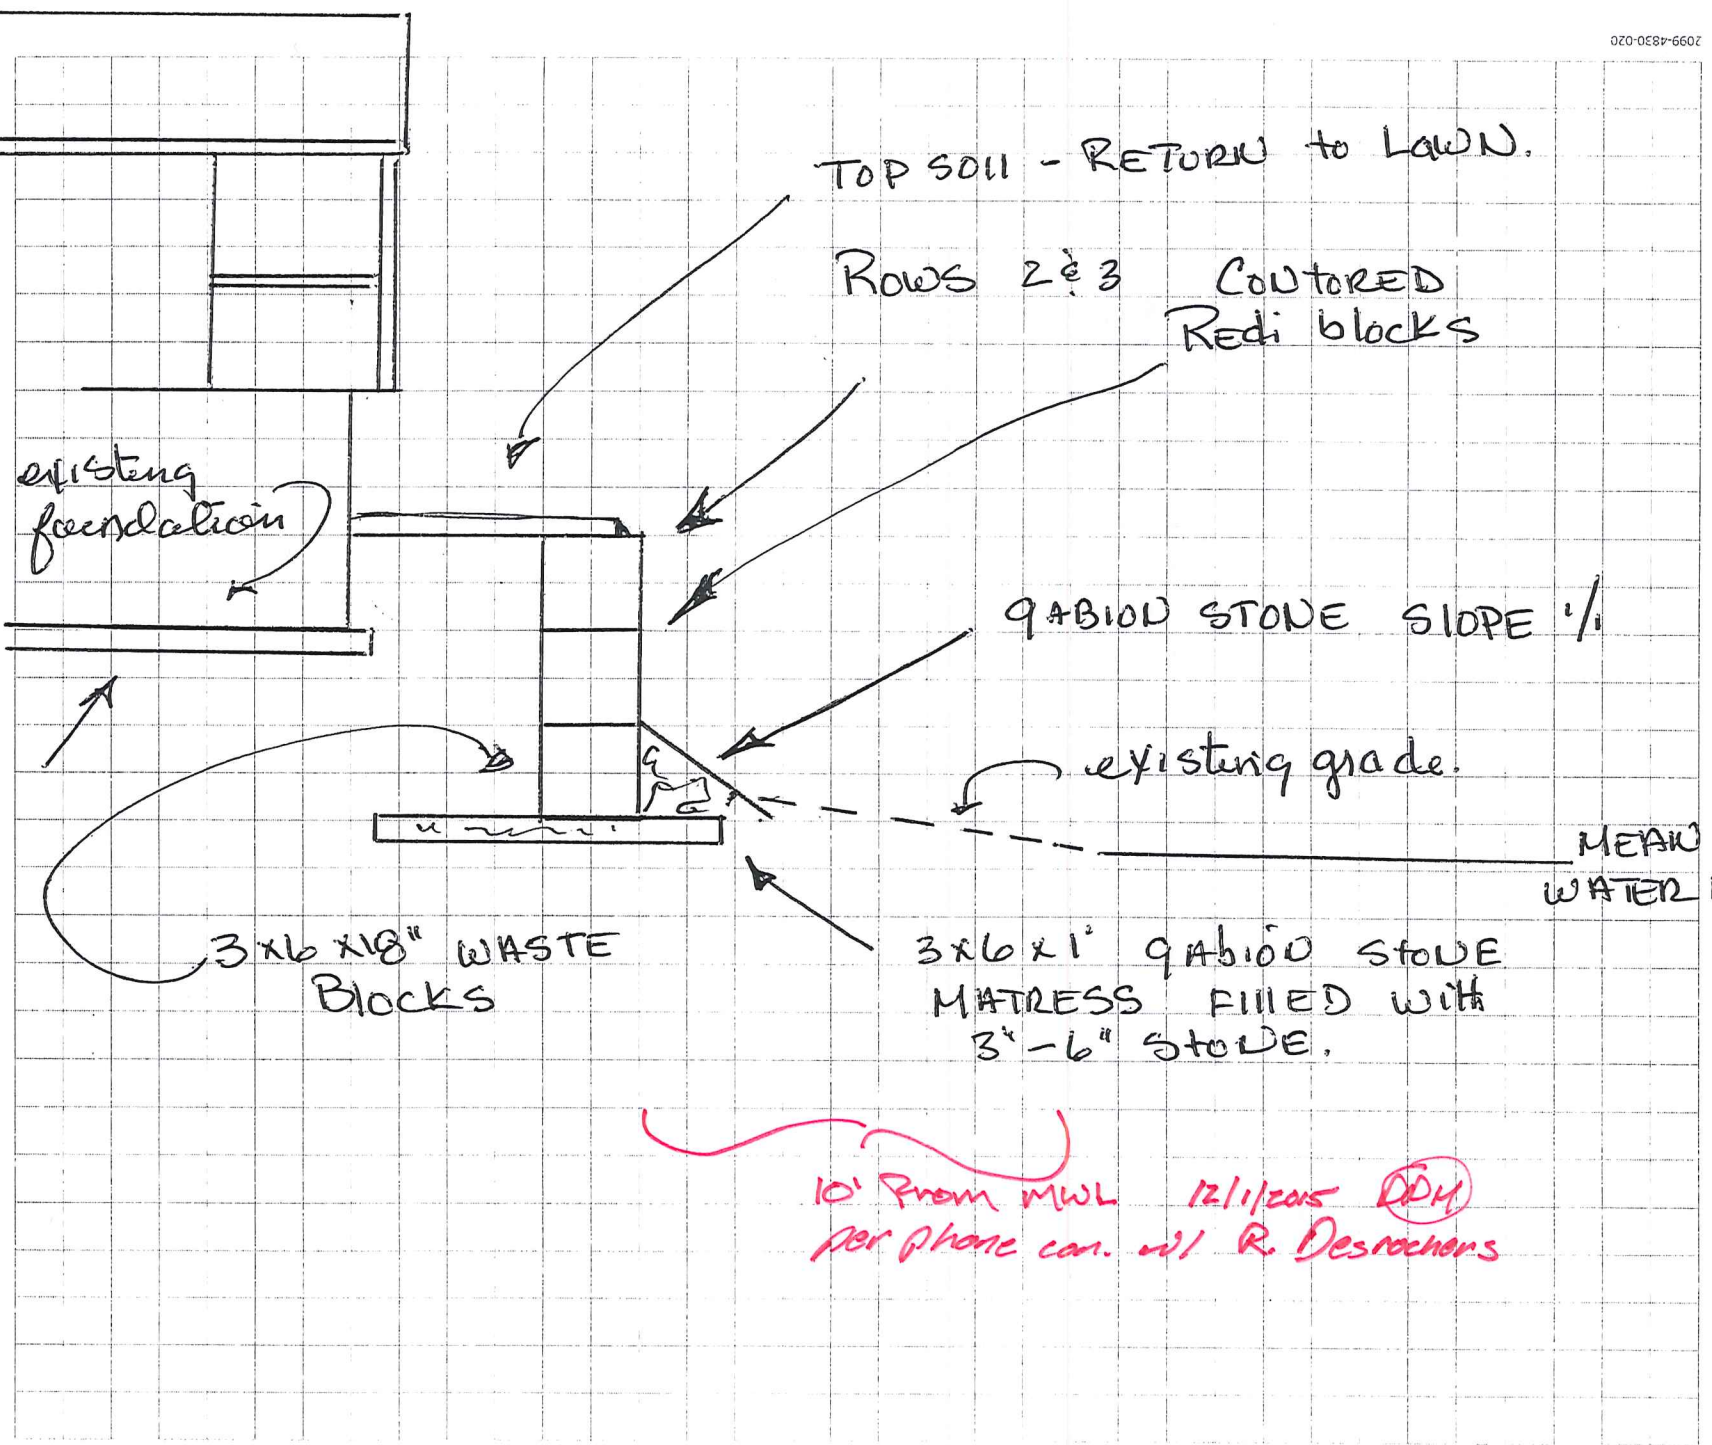 2099-4830-020
TOP SOIl - RETURN to LAWN.
ROWS 2 & 3 CONTORED
REdi blocks
existing
foundation
gABION STONE SlOPE 1/1
existing grade.
MEAN
WATER
3x6 x18" WASTE
BlOCKS
3x6 x1' gAbioN StONE
MATRESS FIllED WitH
3"-6" StONE.
10' From MWL 12/1/2015 DDM
per phone con. w/ R. Desrochers